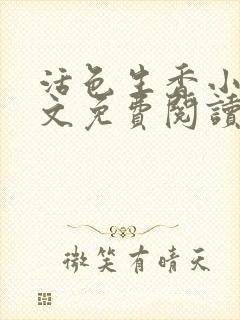 活色生香小
文免費閱讀
微笑有晴天